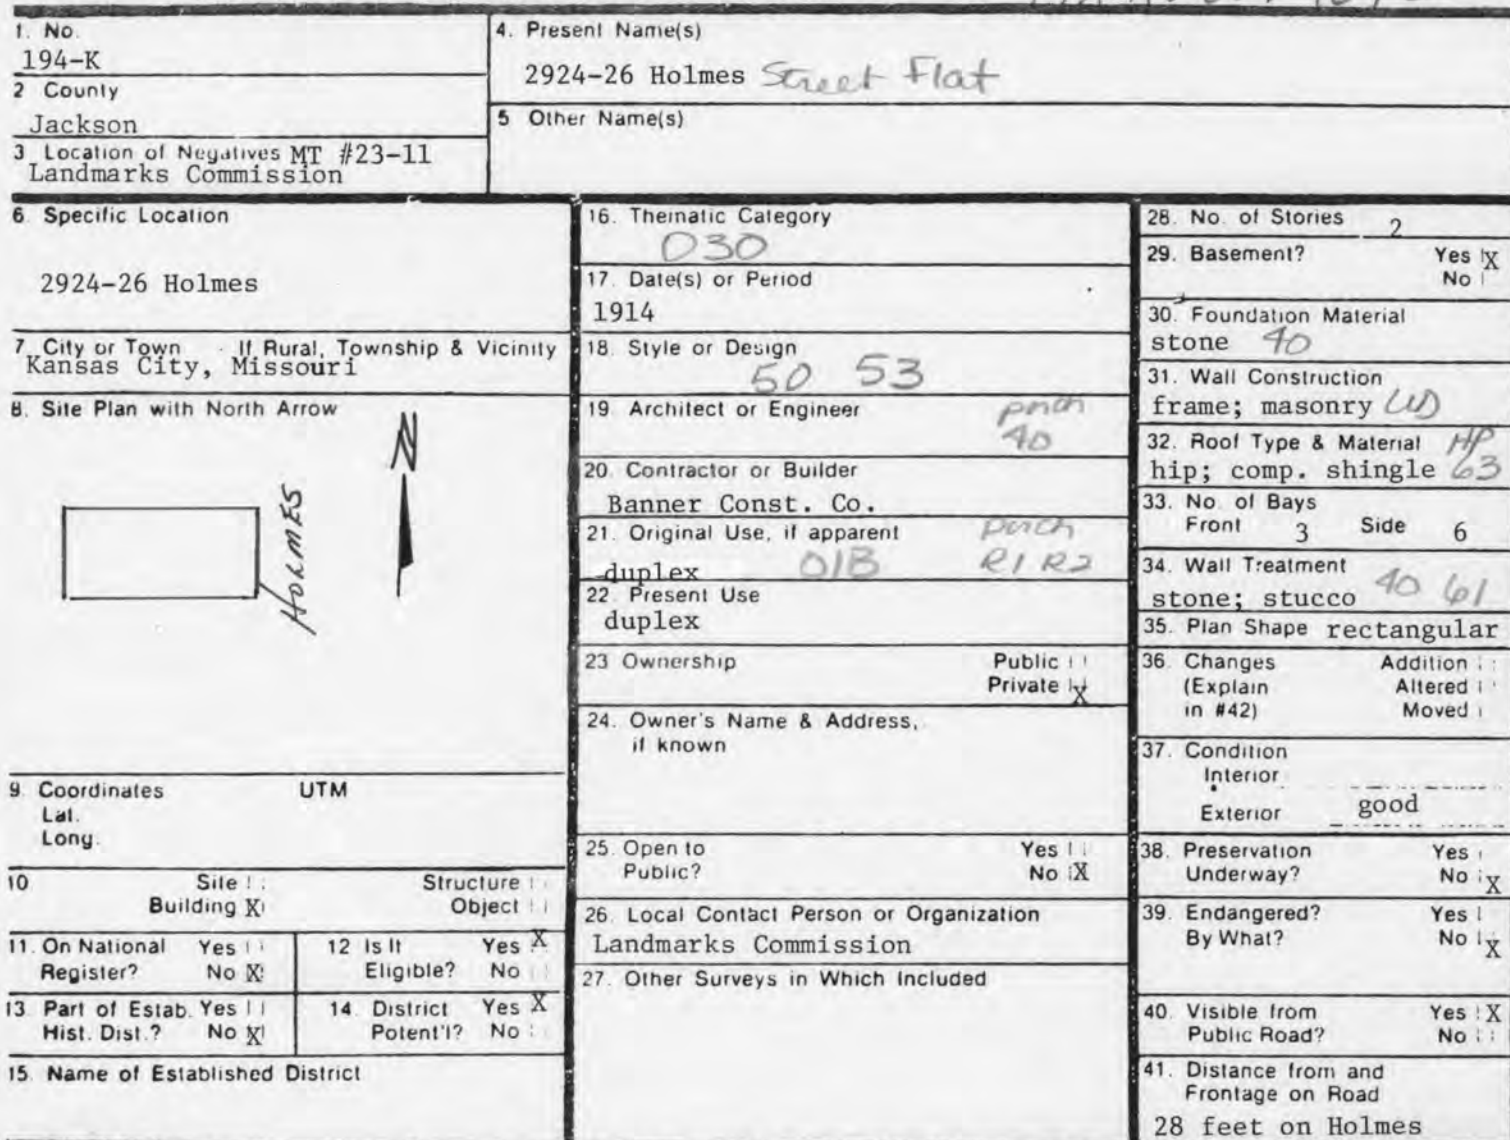 1. No.
194-K
2 County
Jackson
3 Location of Negatives MT #23-11
Landmarks Commission
4. Present Name(s)
2924-26 Holmes Street Flat
5 Other Name(s)
6. Specific Location
2924-26 Holmes
7. City or Town If Rural, Township & Vicinity
Kansas City, Missouri
8. Site Plan with North Arrow
N
HOLMES
9. Coordinates UTM
Lat.
Long.
10 Site Structure
Building X Object
11. On National Yes
Register? No X
12 Is It Yes X
Eligible? No
13. Part of Estab. Yes
Hist. Dist.? No X
14. District Yes X
Potent'l? No
15. Name of Established District
16. Thematic Category
030
17. Date(s) or Period
1914
18. Style or Design
50 53
19. Architect or Engineer porch
40
20. Contractor or Builder
Banner Const. Co.
21. Original Use, if apparent porch
duplex 01B R1 R2
22. Present Use
duplex
23 Ownership Public
Private X
24. Owner's Name & Address,
if known
25. Open to Yes
Public? No X
26. Local Contact Person or Organization
Landmarks Commission
27. Other Surveys in Which Included
28. No. of Stories 2
29. Basement? Yes X
No
30. Foundation Material
stone 40
31. Wall Construction
frame; masonry WD
32. Roof Type & Material HP
hip; comp. shingle 63
33. No. of Bays
Front 3 Side 6
34. Wall Treatment
stone; stucco 40 61
35. Plan Shape rectangular
36. Changes Addition
(Explain Altered
in #42) Moved
37. Condition
Interior
Exterior good
38. Preservation Yes
Underway? No X
39. Endangered? Yes
By What? No X
40. Visible from Yes X
Public Road? No
41. Distance from and
Frontage on Road
28 feet on Holmes